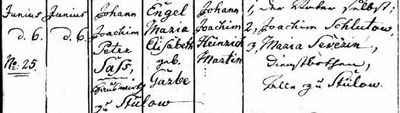 Junius Junius Johann Engel Johann 1, der Vater selbst;
d. 6. d. 6. Joachim Maria Joachim 2, Joachim Schlutow,
Peter Elisabeth Heinrich 3, Maria Severin,
No. 25. Saß, geb. Martin Dienstboten,
Garbe
zu Stülow alle zu Stülow.